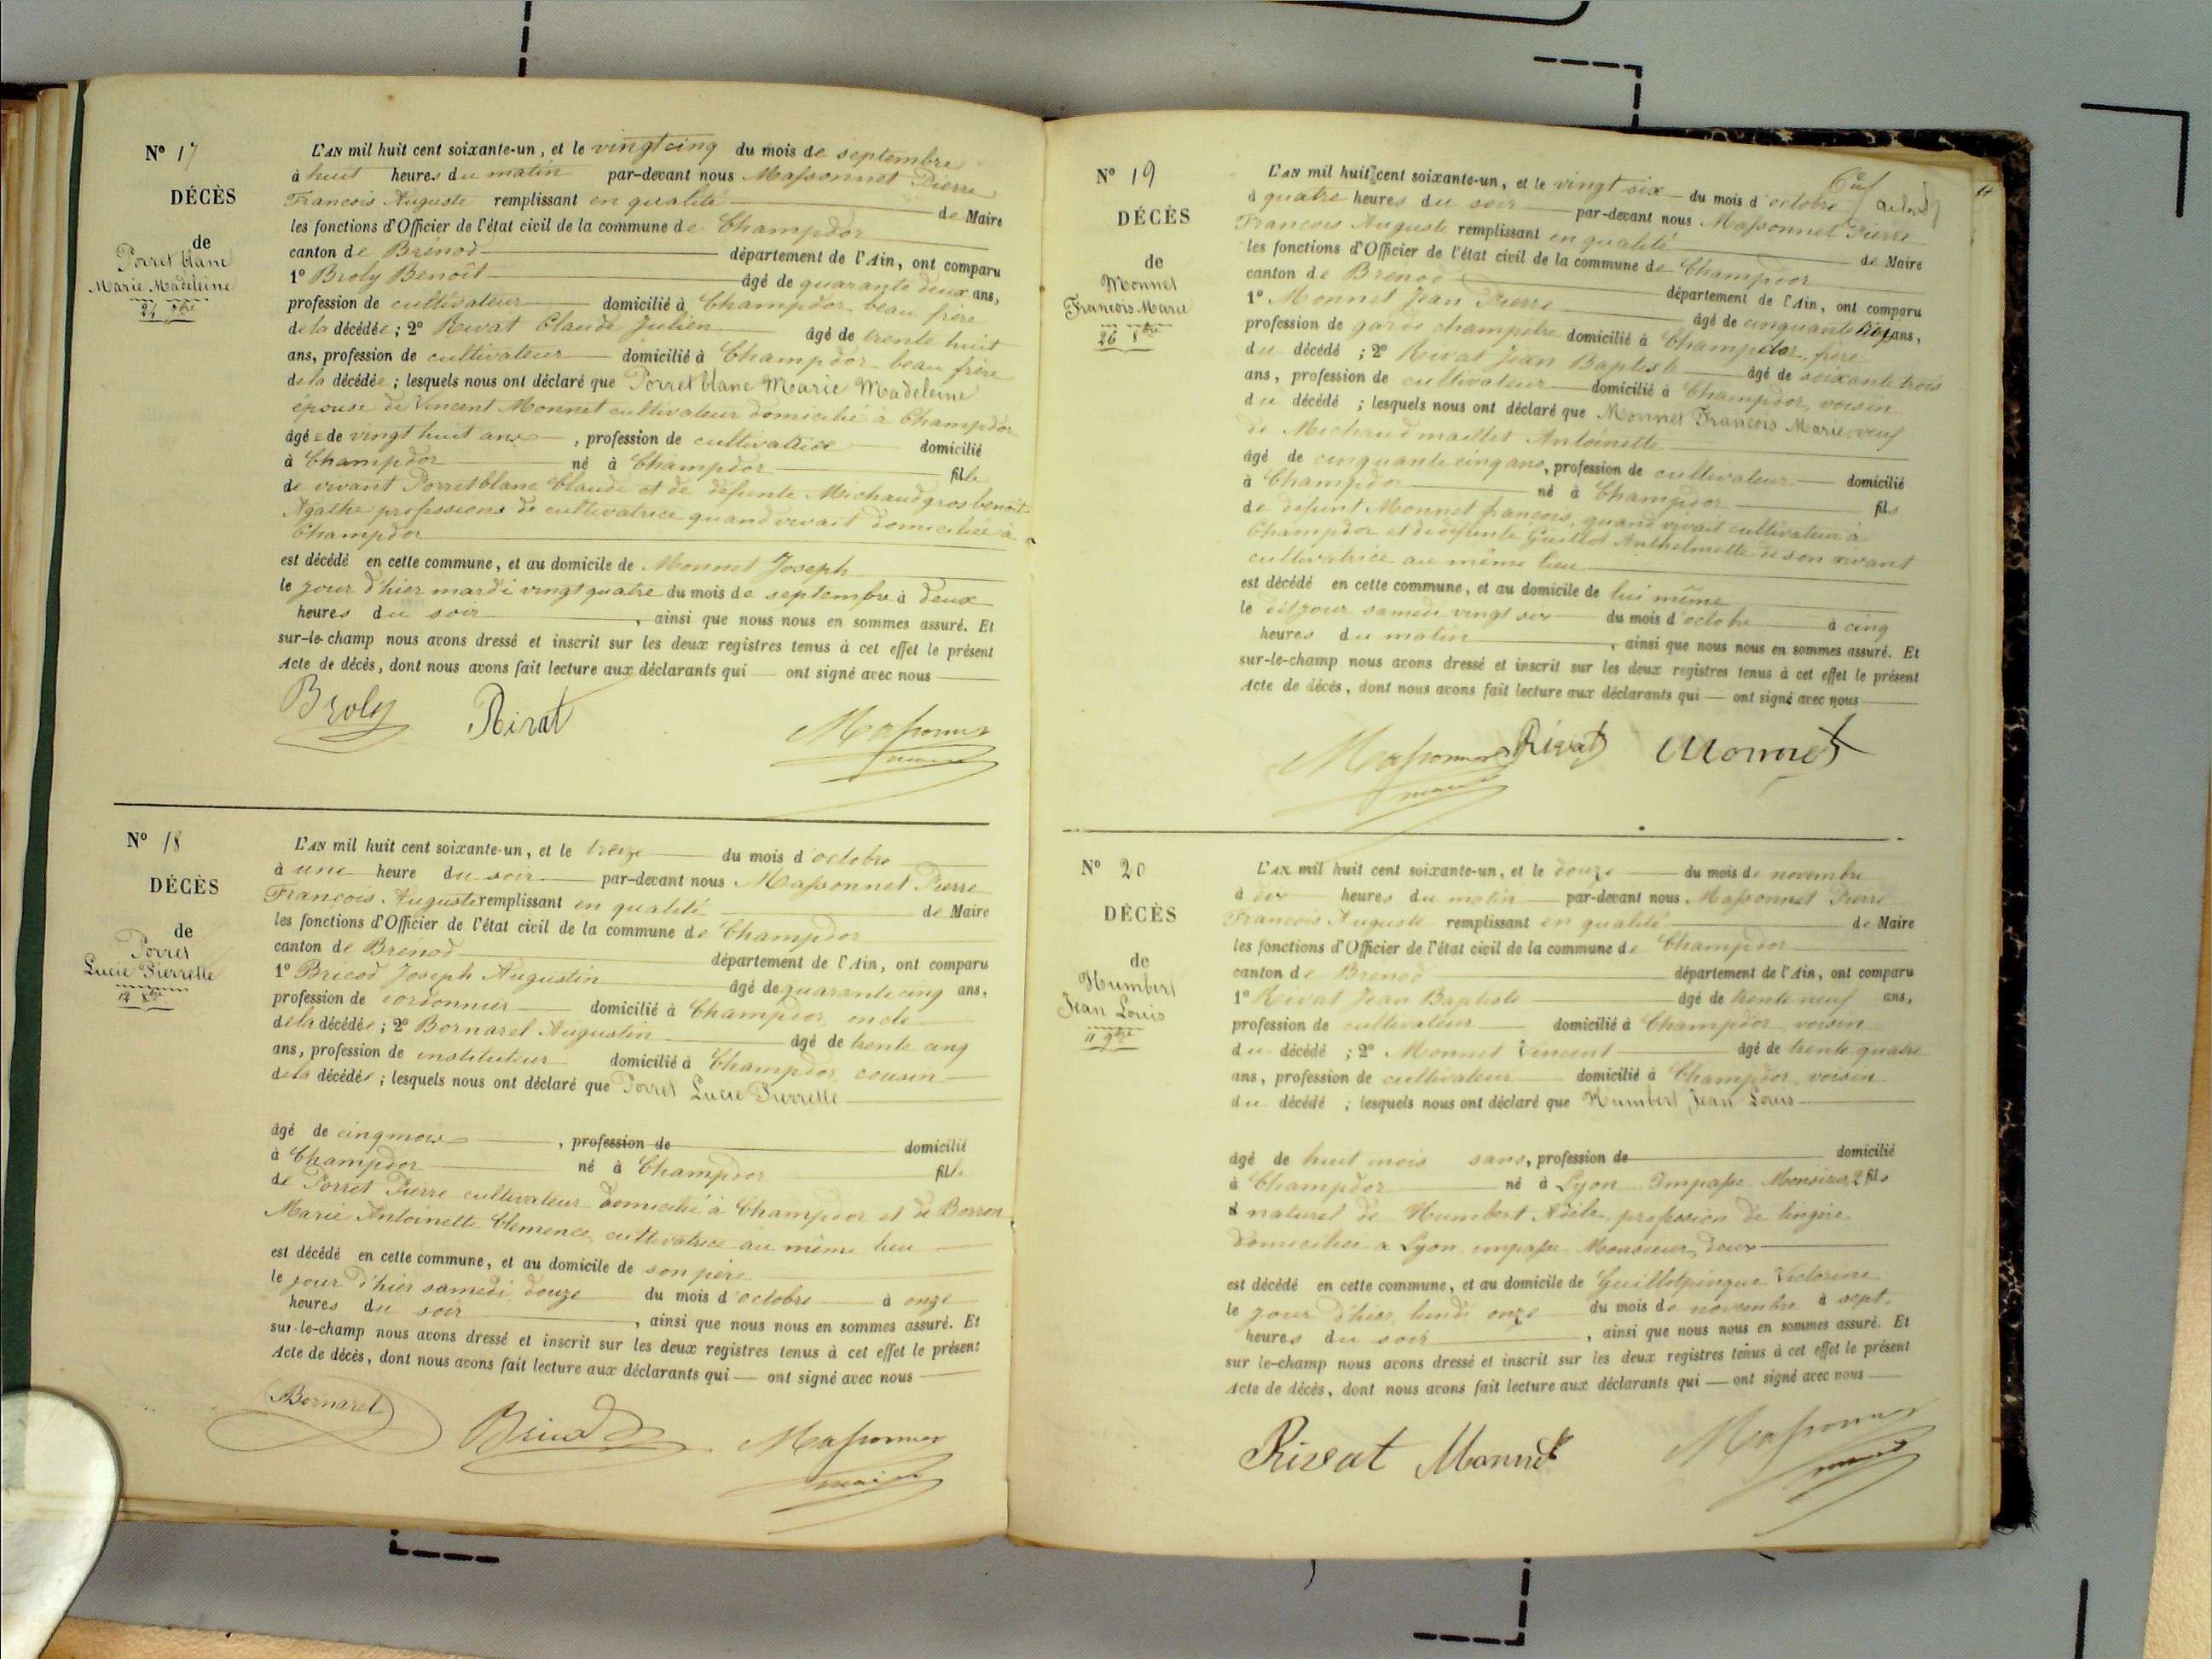 N° 17
DÉCÈS
de
Porret blanc
Marie Madeleine
24 7bre
L'AN mil huit cent soixante-un, et le vingt cinq du mois de septembre
à huit heures du matin par-devant nous Massonnet Pierre
François Auguste remplissant en qualité de Maire
les fonctions d'Officier de l'état civil de la commune de Champdor
canton de Brénod département de l'Ain, ont comparu
1° Broly Benoît âgé de quarante deux ans,
profession de cultivateur domicilié à Champdor, beau frère
de la décédée ; 2° Rivat Claude Julien âgé de trente huit
ans, profession de cultivateur domicilié à Champdor beau frère
de la décédée ; lesquels nous ont déclaré que Porret blanc Marie Madeleine
épouse de Vincent Monnet cultivateur domicilié à Champdor
âgée de vingt huit ans, profession de cultivatrice domicilié
à Champdor né à Champdor fille
de vivant Porretblanc Claude et de défunte Michaudgrosbenoit
Agathe professions de cultivatrice quand vivait domiciliée à
Champdor
est décédé en cette commune, et au domicile de Monnet Joseph
le jour d'hier mardi vingt quatre du mois de septembre à deux
heures du soir, ainsi que nous nous en sommes assuré. Et
sur-le-champ nous avons dressé et inscrit sur les deux registres tenus à cet effet le présent
Acte de décès, dont nous avons fait lecture aux déclarants qui ont signé avec nous
Broly Rivat Massonnet
maire
N° 18
DÉCÈS
de
Porret
Lucie Pierrette
12 8bre
L'AN mil huit cent soixante-un, et le treize du mois d'octobre
à une heure du soir par-devant nous Massonnet Pierre
François Auguste remplissant en qualité de Maire
les fonctions d'Officier de l'état civil de la commune de Champdor
canton de Brénod département de l'Ain, ont comparu
1° Bricod Joseph Augustin âgé de quarante cinq ans,
profession de cordonnier domicilié à Champdor, oncle
de la décédée ; 2° Bornarel Augustin âgé de trente cinq
ans, profession de instituteur domicilié à Champdor, cousin
de la décédée ; lesquels nous ont déclaré que Porret Lucie Pierrette
âgé de cinq mois, profession de domicilié
à Champdor né à Champdor fille
de Porret Pierre cultivateur domicilié à Champdor et de Borron
Marie Antoinette Clemence, cultivatrice au même lieu
est décédé en cette commune, et au domicile de son père
le jour d'hier samedi douze du mois d'octobre à onze
heures du soir, ainsi que nous nous en sommes assuré. Et
sur-le-champ nous avons dressé et inscrit sur les deux registres tenus à cet effet le présent
Acte de décès, dont nous avons fait lecture aux déclarants qui ont signé avec nous
Bornarel Bricod Massonnet
maire
N° 19
DÉCÈS
de
Monnet
François Marie
26 8bre
L'AN mil huit cent soixante-un, et le vingt six du mois d'octobre
à quatre heures du soir par-devant nous Massonnet Pierre
François Auguste remplissant en qualité de Maire
les fonctions d'Officier de l'état civil de la commune de Champdor
canton de Brénod département de l'Ain, ont comparu
1° Monnet Jean Pierre âgé de cinquante ans,
profession de garde champêtre domicilié à Champdor, frère
du décédé ; 2° Rivat Jean Baptiste âgé de soixante trois
ans, profession de cultivateur domicilié à Champdor, voisin
du décédé ; lesquels nous ont déclaré que Monnet François Marie, veuf
de Michaud maillet Antoinette
âgé de cinquante cinq ans, profession de cultivateur domicilié
à Champdor né à Champdor fils
de defunt Monnet françois, quand vivait cultivateur à
Champdor et de défunte Guillot Anthelmette de son vivant
cultivatrice au même lieu
est décédé en cette commune, et au domicile de lui même
le dit jour samedi vingt six du mois d'octobre à cinq
heures du matin, ainsi que nous nous en sommes assuré. Et
sur-le-champ nous avons dressé et inscrit sur les deux registres tenus à cet effet le présent
Acte de décès, dont nous avons fait lecture aux déclarants qui ont signé avec nous
Massonnet Rivat Monnet
maire
N° 20
DÉCÈS
de
Humbert
Jean Louis
11 9bre
L'AN mil huit cent soixante-un, et le douze du mois de novembre
à dix heures du matin par-devant nous Massonnet Pierre
François Auguste remplissant en qualité de Maire
les fonctions d'Officier de l'état civil de la commune de Champdor
canton de Brenod département de l'Ain, ont comparu
1° Rivat Jean Baptiste âgé de trente neuf ans,
profession de cultivateur domicilié à Champdor voisin
du décédé ; 2° Monnet Vincent âgé de trente quatre
ans, profession de cultivateur domicilié à Champdor voisin
du décédé ; lesquels nous ont déclaré que Humbert Jean Louis
âgé de huit mois sans, profession de domicilié
à Champdor né à Lyon Impasse Monsieur, 2 fils
naturel de Humbert Adèle profession de lingère
domiciliée a Lyon impasse Monsieur, deux
est décédé en cette commune, et au domicile de Guillotpingue Victorine
le jour d'hier, lundi onze du mois de novembre à sept
heures du soir, ainsi que nous nous en sommes assuré. Et
sur le-champ nous avons dressé et inscrit sur les deux registres tenus à cet effet le présent
Acte de décès, dont nous avons fait lecture aux déclarants qui ont signé avec nous
Rivat Monnet Massonnet
maire